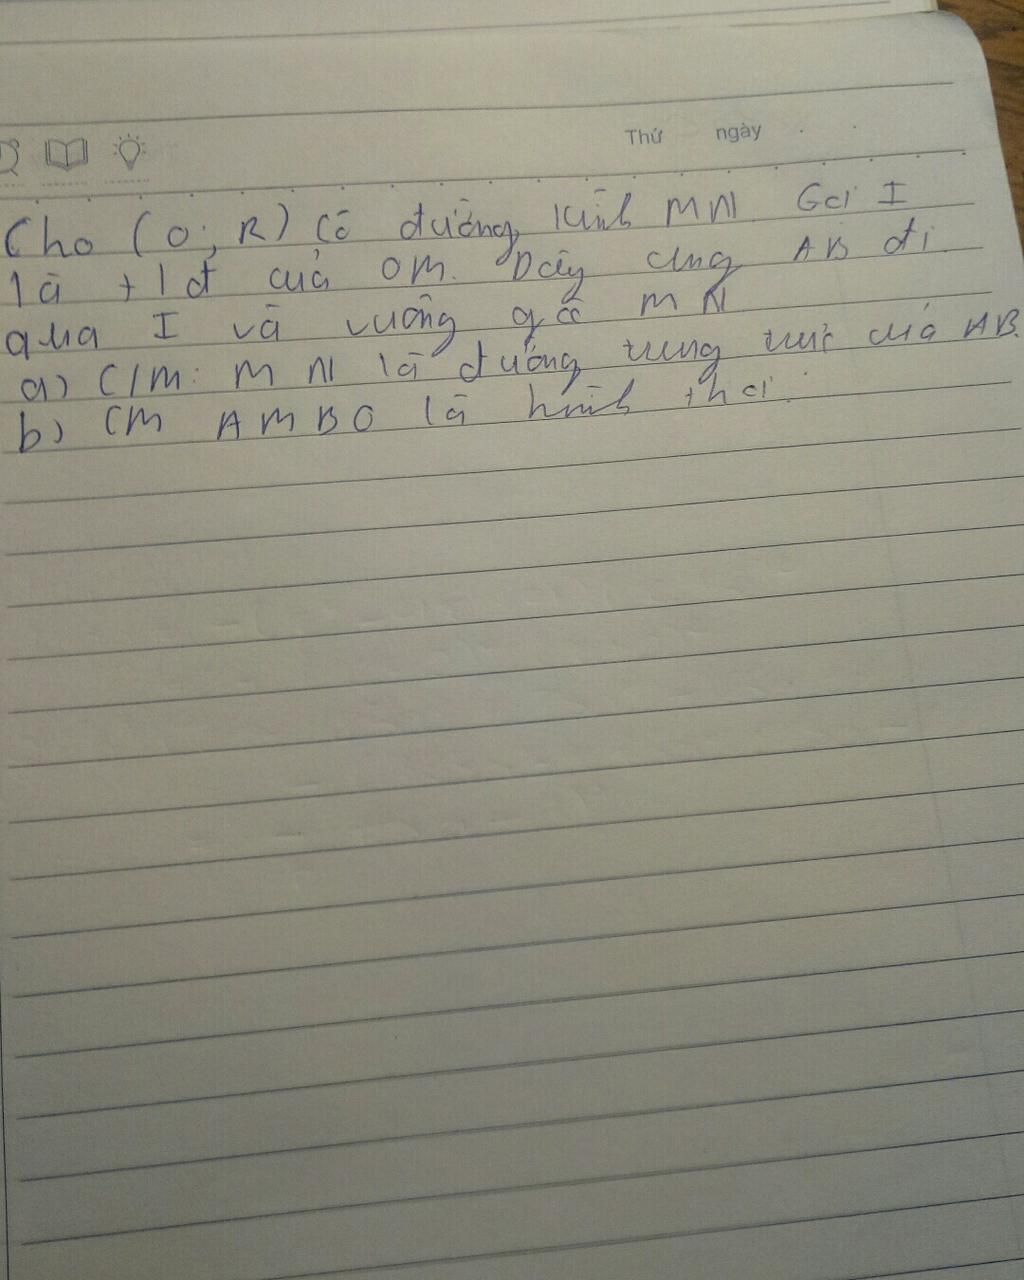 Thứ ngày
Cho (O; R) có đường kính MN. Gọi I
là tđ của OM. Dây cung AB đi
qua I và vuông góc MN
a) C/M: MN là đường trung trực của AB.
b) CM AMBO là hình thoi.